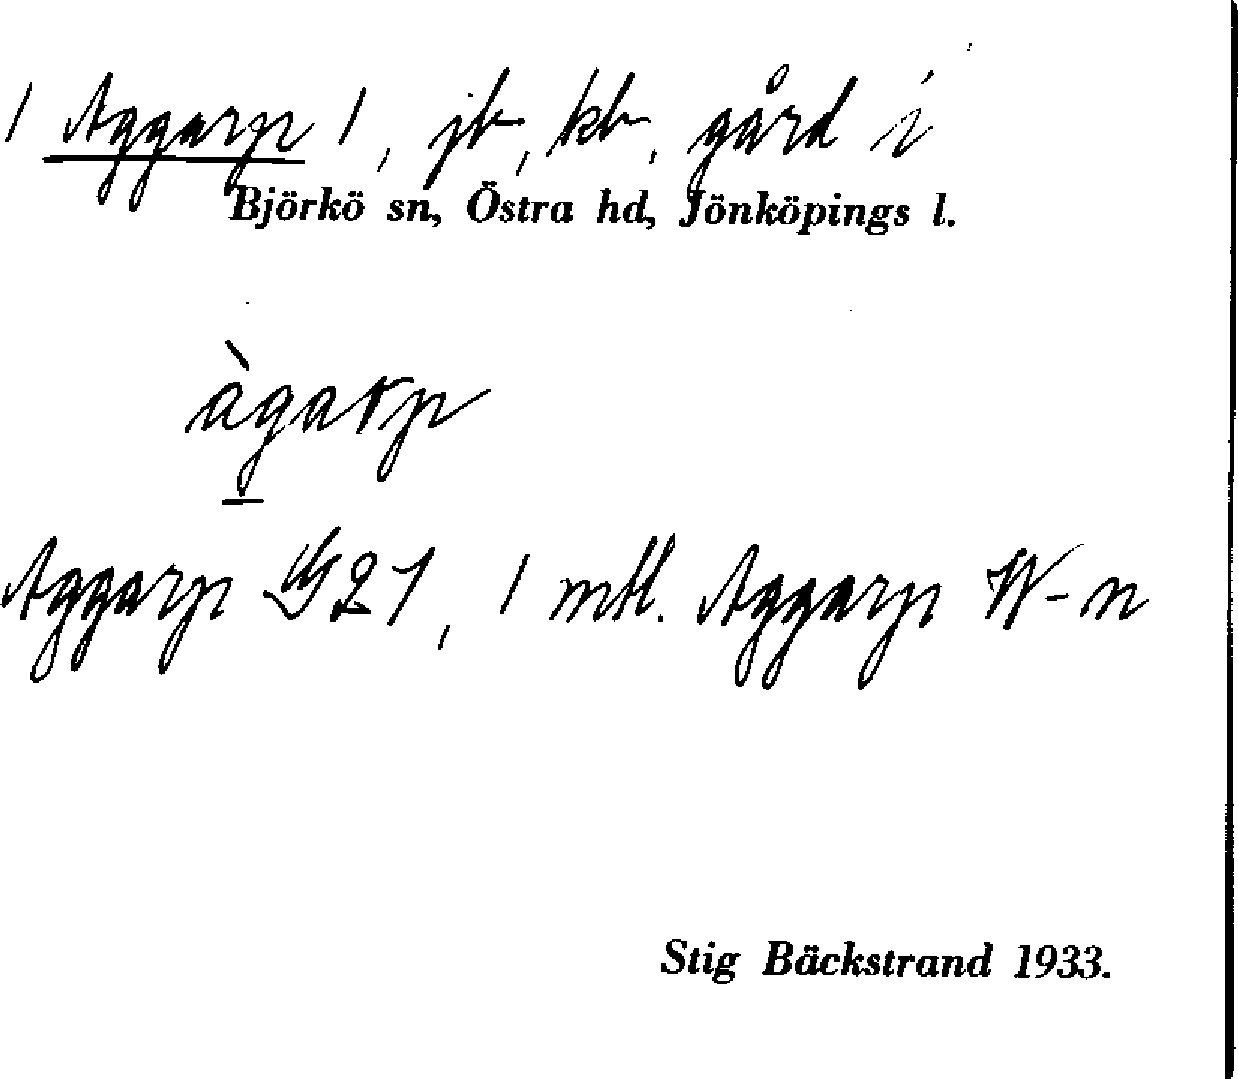 / Aggarp /, jb, kb, gård i
Björkö sn, Östra hd, Jönköpings l.
àgarp
Aggarp G21, 1 mtl. Aggarp W-n
Stig Bäckstrand 1933.